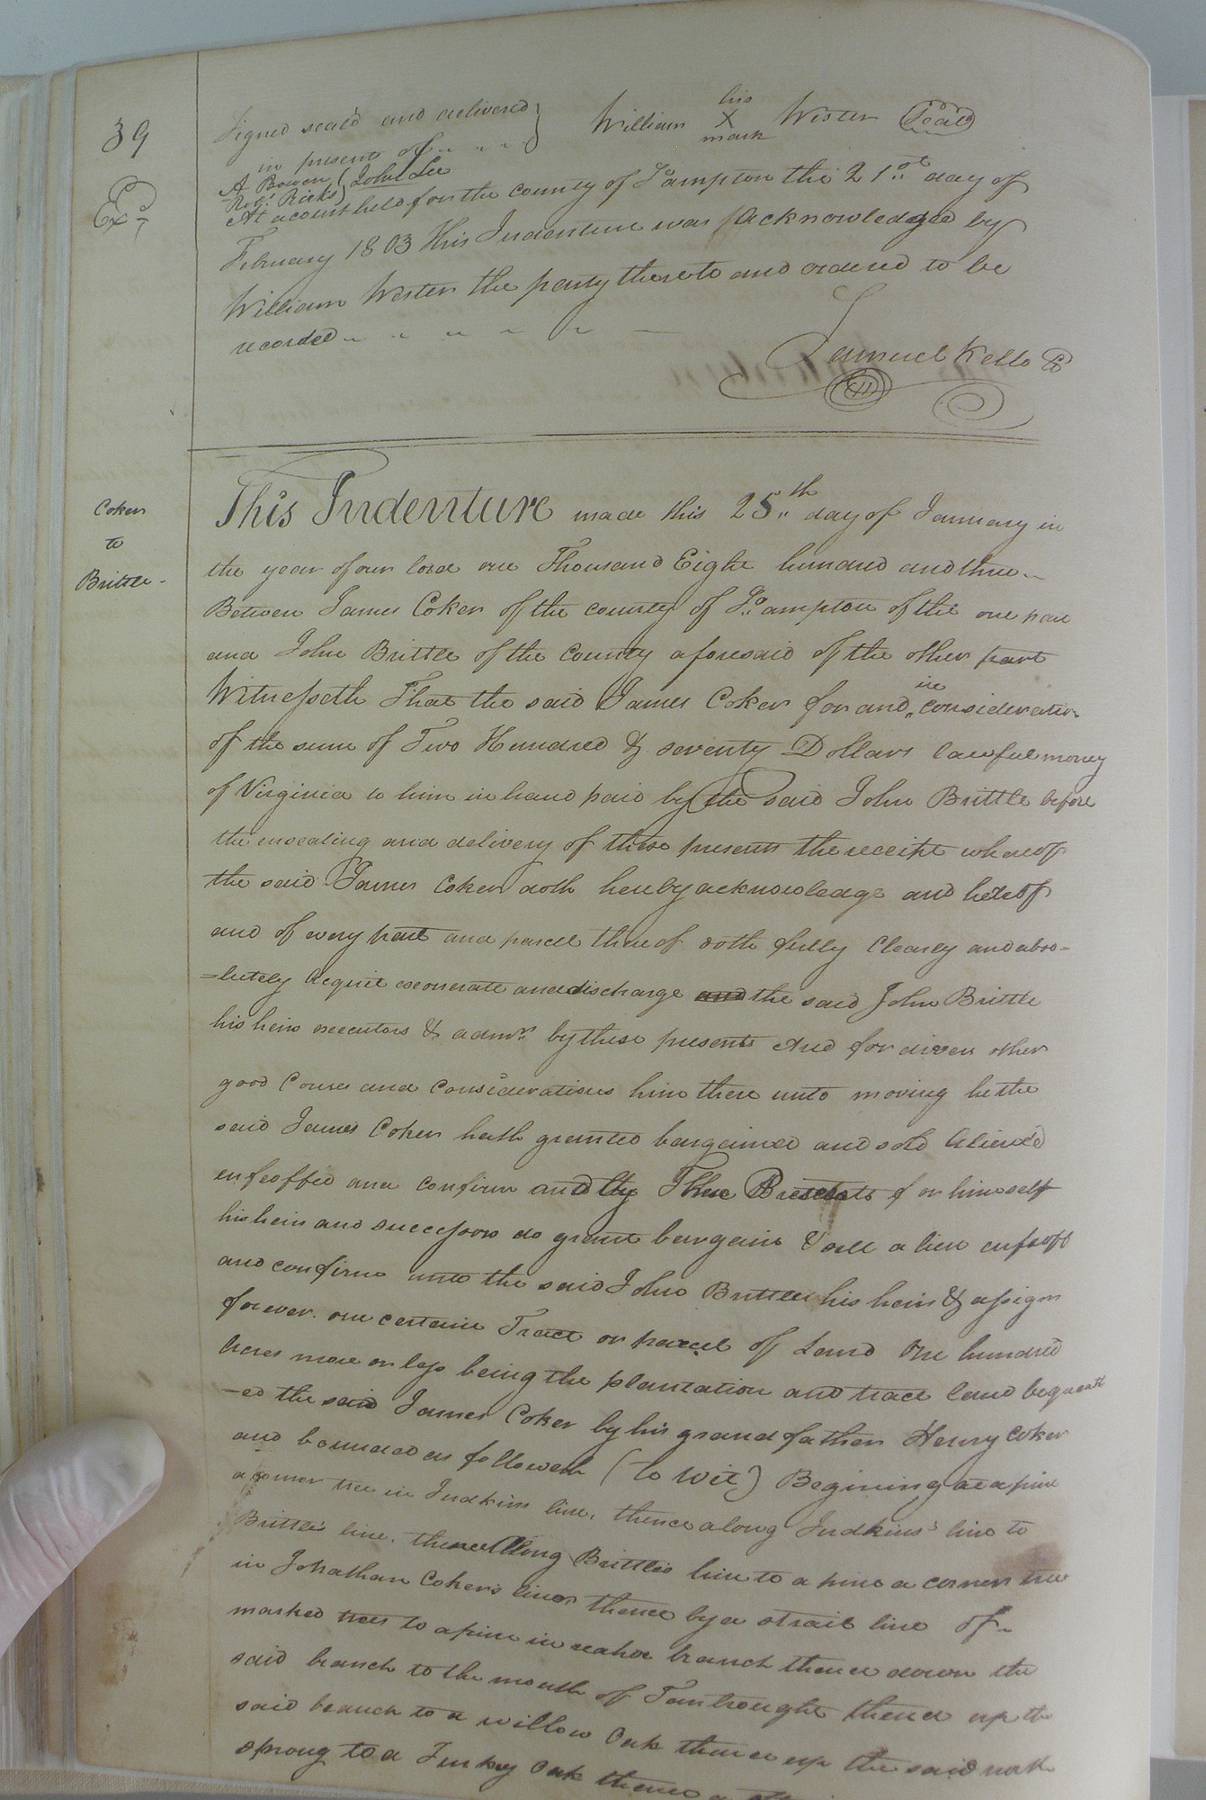 39
Signed seal'd and delivered
in presents of
his
William X Wester Seal
mark
A Bowen John Lee
Ro. Ricks
Exd
At a court held for the county of So.ampton the 21st day of
February 1803 This Indenture was Acknowledged by
William Wester the party thereto and ordered to be
recorded
Samuel Kello
Coker
to
Brittle
This Indenture made this 25th day of January in
the year of our lord one Thousand Eight hundred and three
Between James Coker of the county of So.ampton of the one part
and John Brittle of the County aforesaid of the other part
Witnesseth That the said James Coker for and in consideration
of the sum of Two Hundred & seventy Dollars lawful money
of Virginia to him in hand paid by the said John Brittle before
the ensealing and delivery of these presents the receipt whereof
the said James Coker doth hereby acknowledge and hereof
and of every part and parcell thereof doth fully Clearly and abso-
=lutely Acquit exonerate and discharge and the said John Brittle
his heirs executors & admrs by these presents And for divers other
good Couses and Considerations him there unto moving he the
said James Coker hath granted bargained and sold Aliend
enfeoffed and confirm and by These Presents for himself
his heirs and successors do grant bargain & sell alien enfeoff
and confirm unto the said John Brittle his heirs & assigns
forever. one certain Tract or parcel of Land One hundred
Acres more or less being the plantation and tract land bequeath
-ed the said James Coker by his grandfather Henry Coker
and bounded as followeth (to wit) Begining at a pine
a corner tree in Judkins line, thence along Judkins' line to
Brittle's line, thence along Brittles line to a pine a corner tree
in Johathan Coker's line thence by a strait line of
marked trees to a pine in branch thence down the
said branch to the mouth of thence up the
said branch to a willow Oak thence up the said
sprong to a Turkey Oak thence